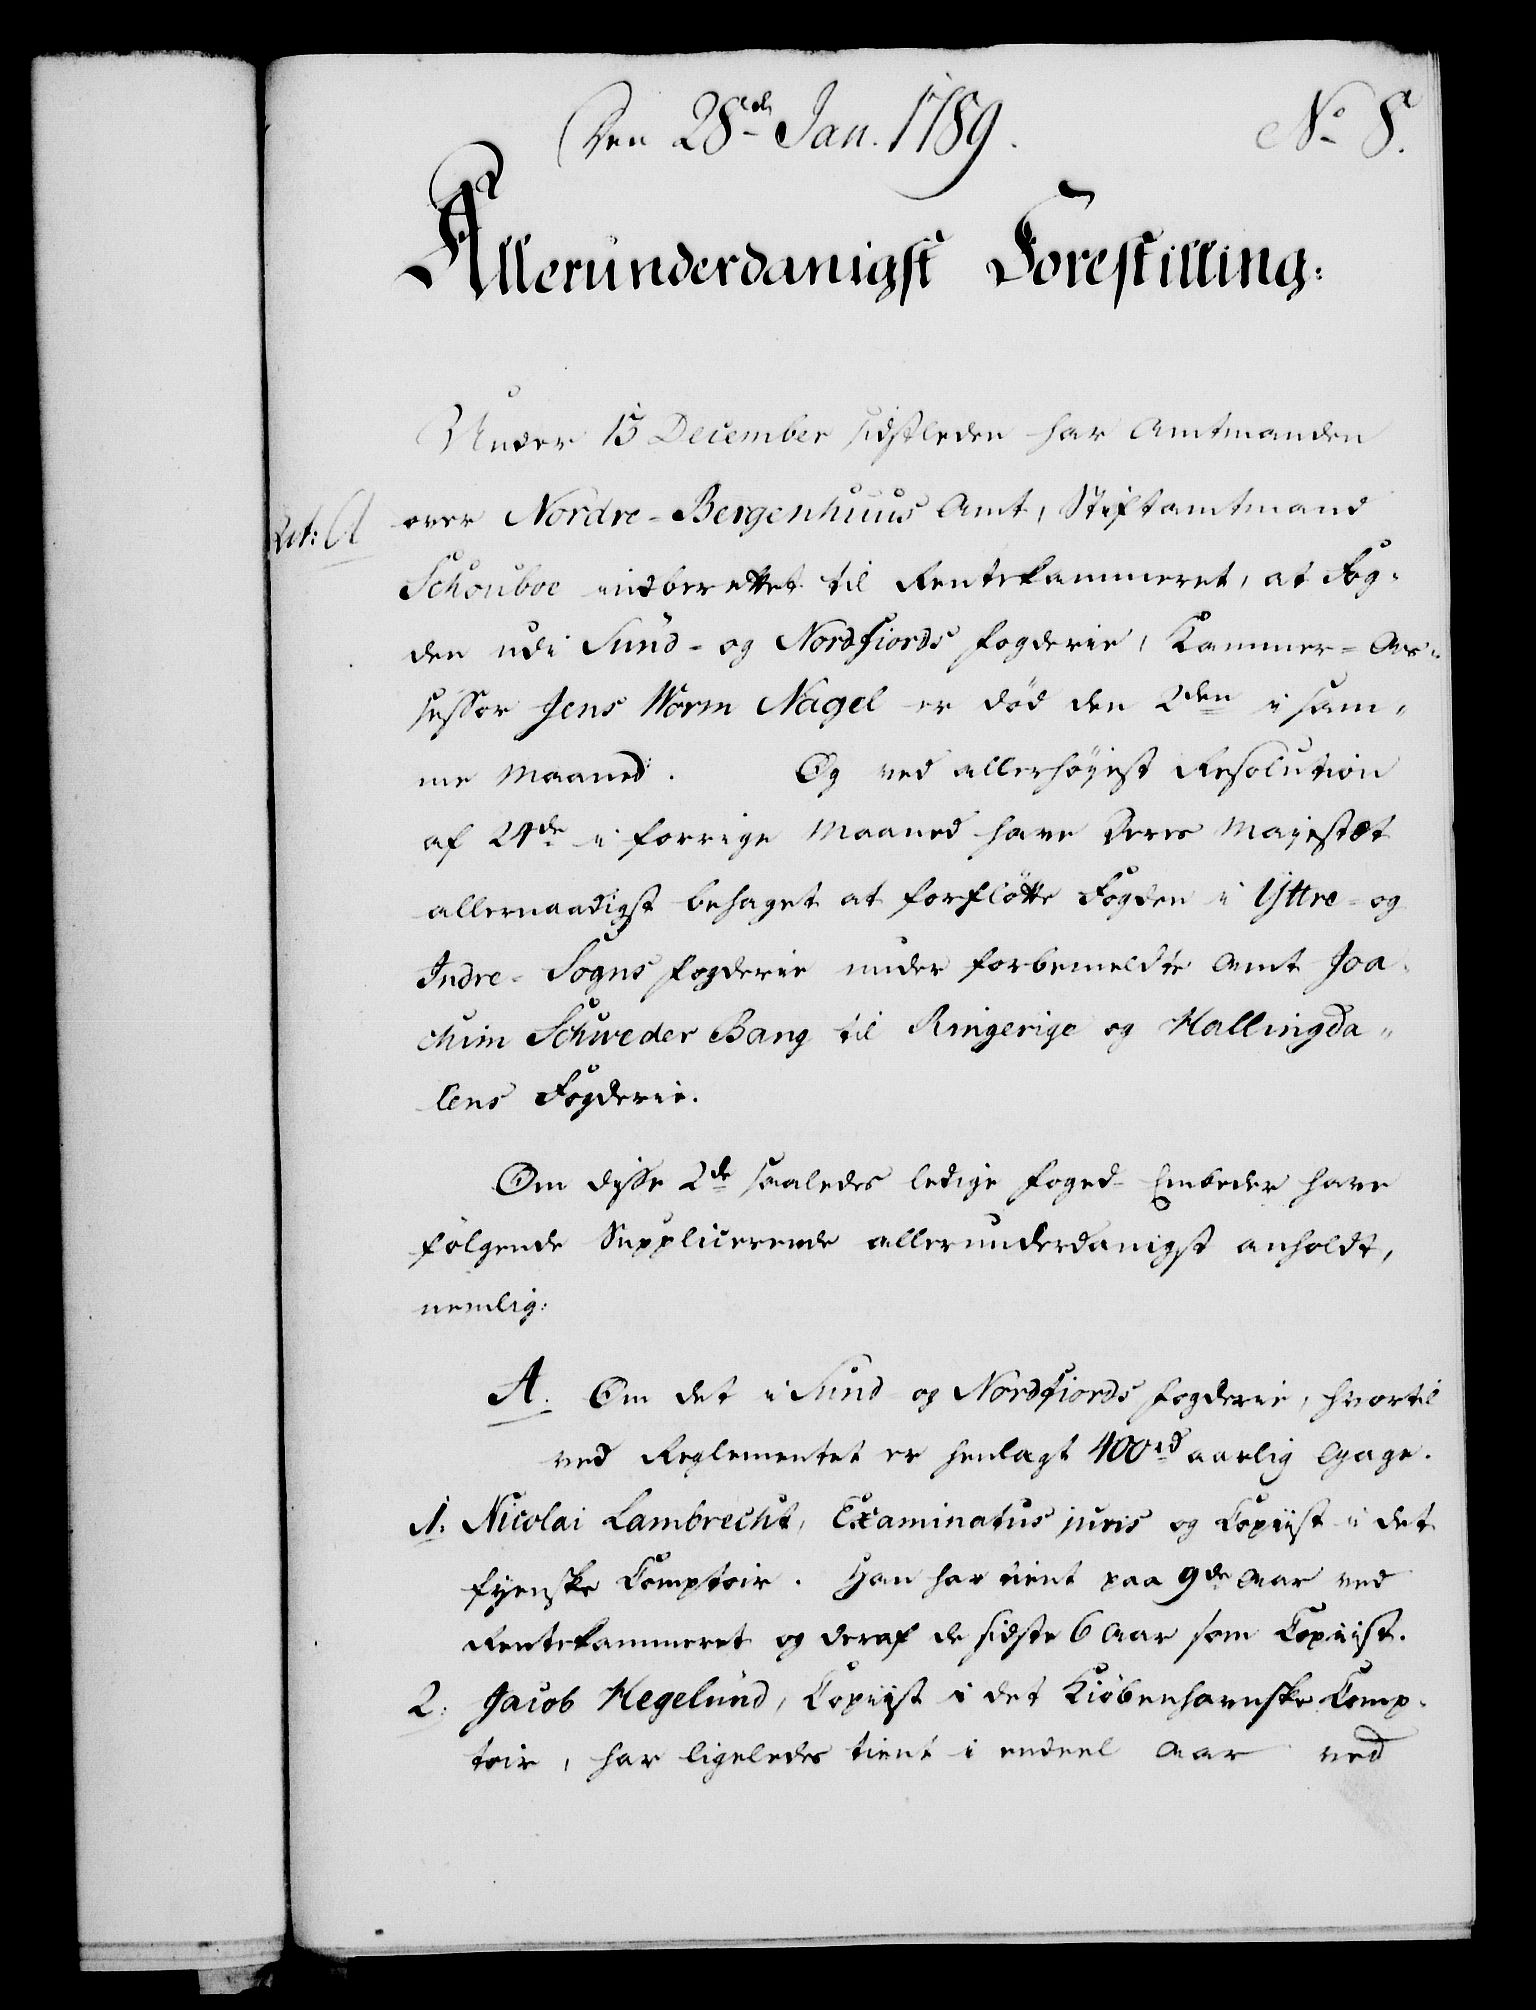 Den 28de Jan. 1789.
No 8.
Allerunderdanigst Forestilling:
Under 13 December sidstleden har Amtmanden
Lit: A
over Nordre-Bergenhuus Amt, Stiftamtmand
Schouboe indberettet til Rentekammeret, at Fog-
den udi Sund- og Nordfiords Fogderie, Kammer-As-
sessor Jens Worm Nagel er död den 2den i sam-
me Maaned. Og ved allerhöyest Resolution
af 24de i forrige Maaned have Deres Majestæt
allernaadigst behaget at forflötte Fogden i Yttre- og
Indre-Sogns Fogderie under forbemeldte Amt Joa-
chim Schweder Bang til Ringerige og Hallingda-
lens Fogderie.
Om disse 2de saaledes ledige Foged-Embeder have
fölgende Supplicerende allerunderdanigst anholdt,
nemlig:
A. Om det i Sund- og Nordfiords Fogderie, hvortil
ved Reglementet er henlagt 400rd aarlig Gage.
1. Nicolai Lambrecht, Examinatus juris og Copiist i det
fyenske Comptoir. Han har tient paa 9de Aar ved
Rentekammeret og deraf de sidste 6 Aar som Copiist.
2. Jacob Hegelund, Copiist i det Kiöbenhavnske Comp-
toir, har ligeledes tient i endeel Aar ved